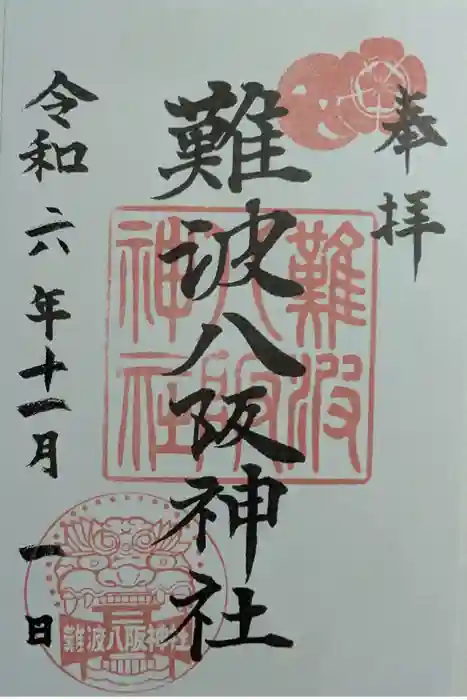 奉拝
難波八阪神社
難波
八阪
神社
令和六年十一月一日
難波八阪神社